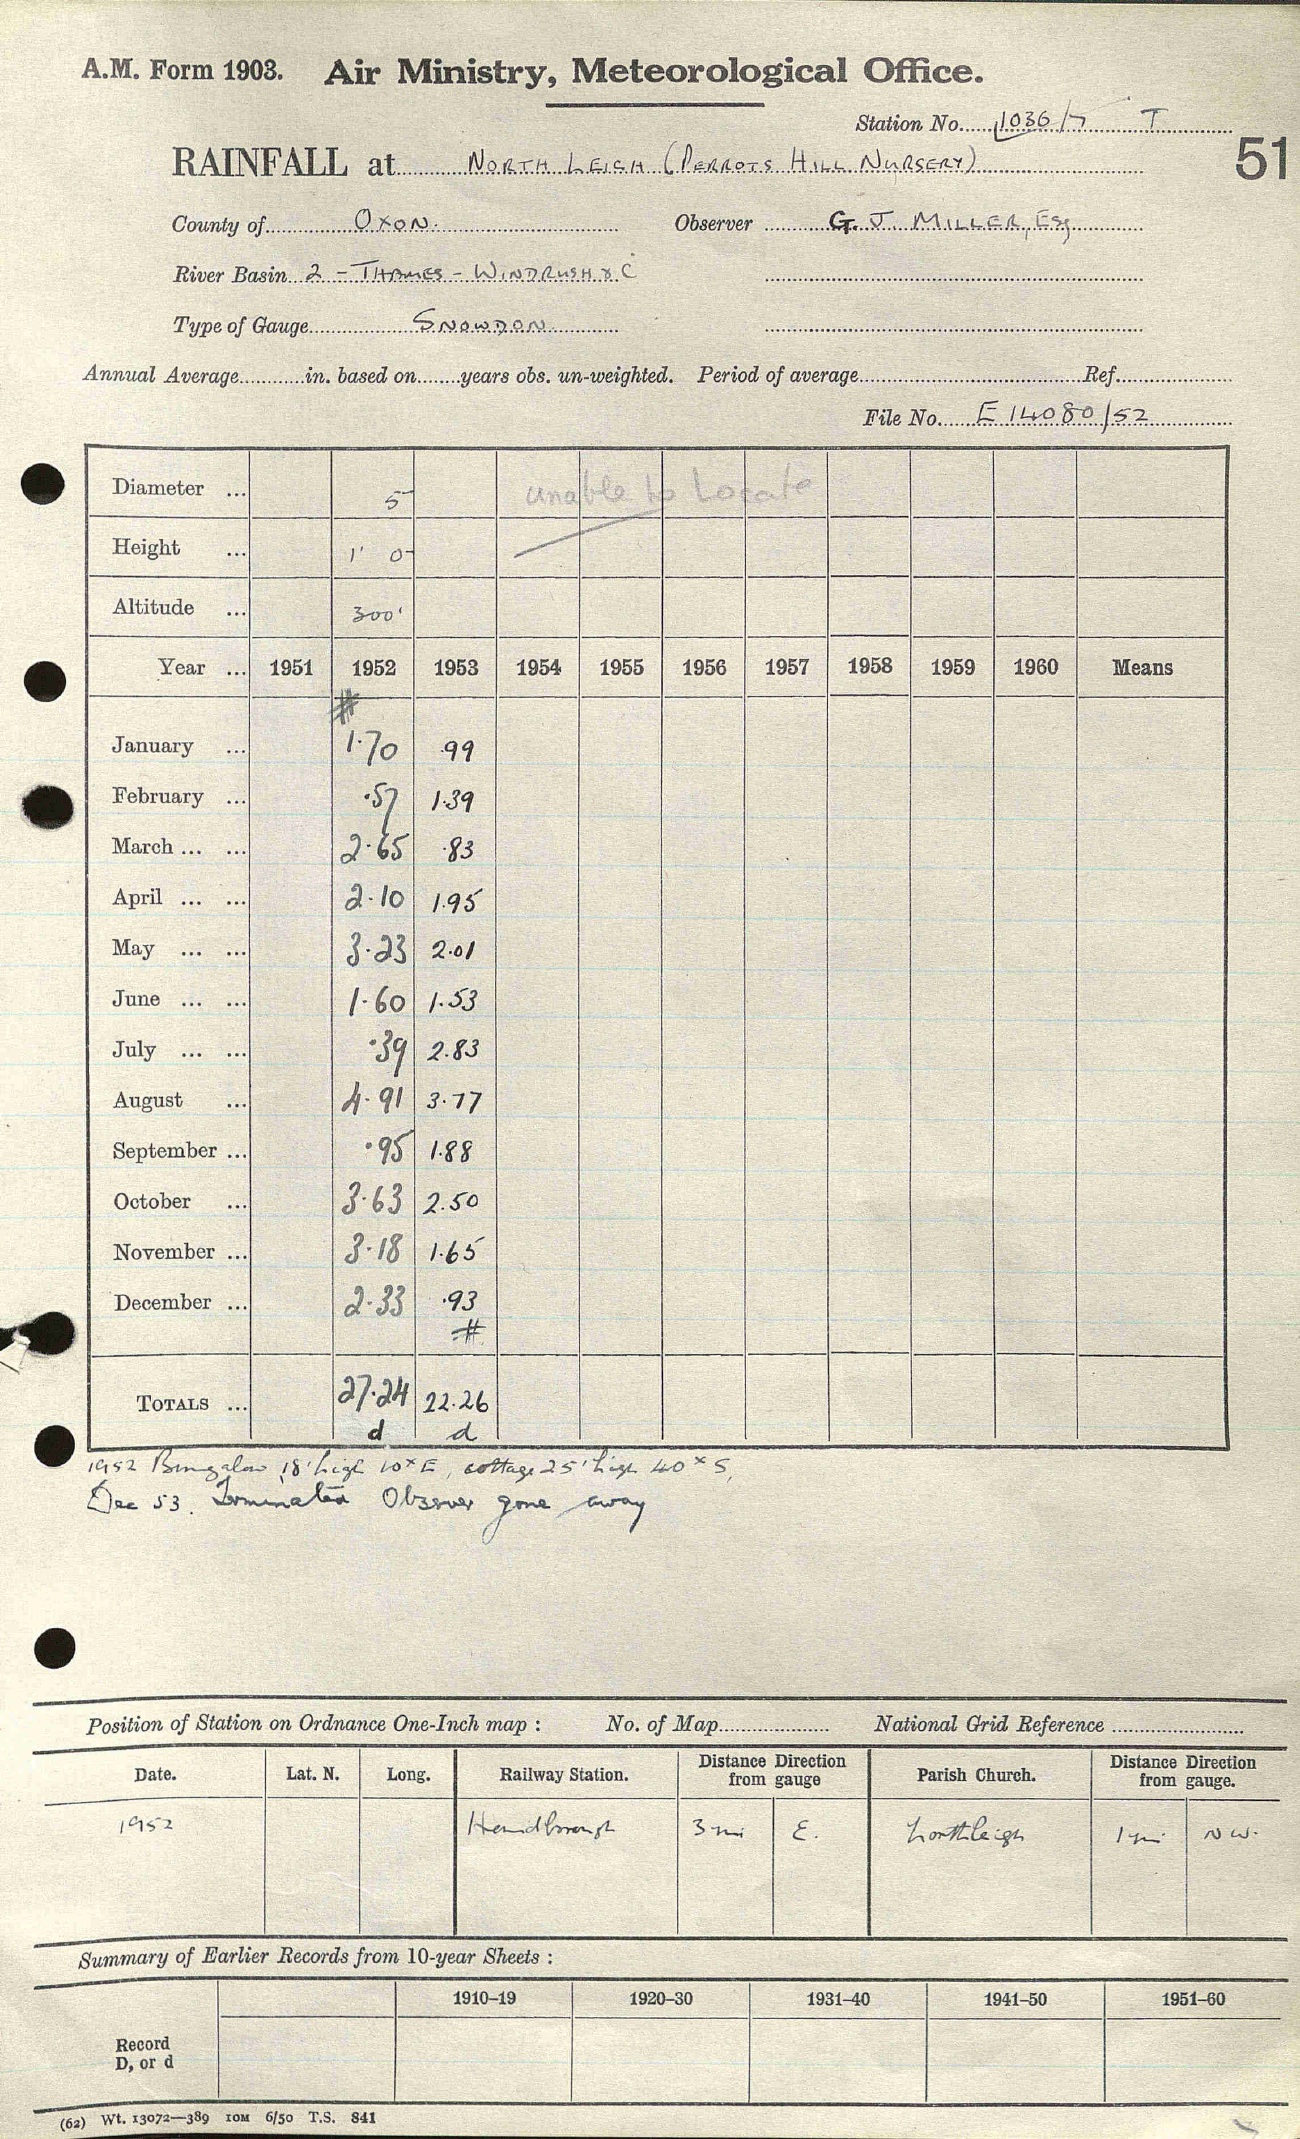 A.M. Form 1903. Air Ministry, Meteorological Office.
Station No. 1036/7 T
51
RAINFALL at NORTH LEIGH (PERROTS HILL NURSERY)
County of OXON. Observer G. J. MILLER, Esq
River Basin 2 - THAMES - WINDRUSH & C
Type of Gauge SNOWDON
Annual Average in. based on years obs. un-weighted. Period of average Ref.
File No. E 14080/52
Diameter ... 5 unable to Locate
Height ... 1' 0
Altitude ... 300'
Year ... 1951 1952 1953 1954 1955 1956 1957 1958 1959 1960 Means
#
January ... 1.70 .99
February ... .57 1.39
March ... ... 2.65 .83
April ... ... 2.10 1.95
May ... ... 3.23 2.01
June ... ... 1.60 1.53
July ... ... .39 2.83
August ... 4.91 3.77
September ... .95 1.88
October ... 3.63 2.50
November ... 3.18 1.65
December ... 2.33 .93
#
TOTALS ... 27.24 22.26
d d
1952 Bungalow 18' high 10x E, cottage 25' high 40x S,
Dec 53. Terminated Observer gone away
Position of Station on Ordnance One-Inch map : No. of Map National Grid Reference
Date. Lat. N. Long. Railway Station. Distance Direction from gauge Parish Church. Distance Direction from gauge.
1952 Handborough 3 mi E. Northleigh 1 mi NW.
Summary of Earlier Records from 10-year Sheets :
1910-19 1920-30 1931-40 1941-50 1951-60
Record
D, or d
(62) Wt. 13072—389 10M 6/50 T.S. 841